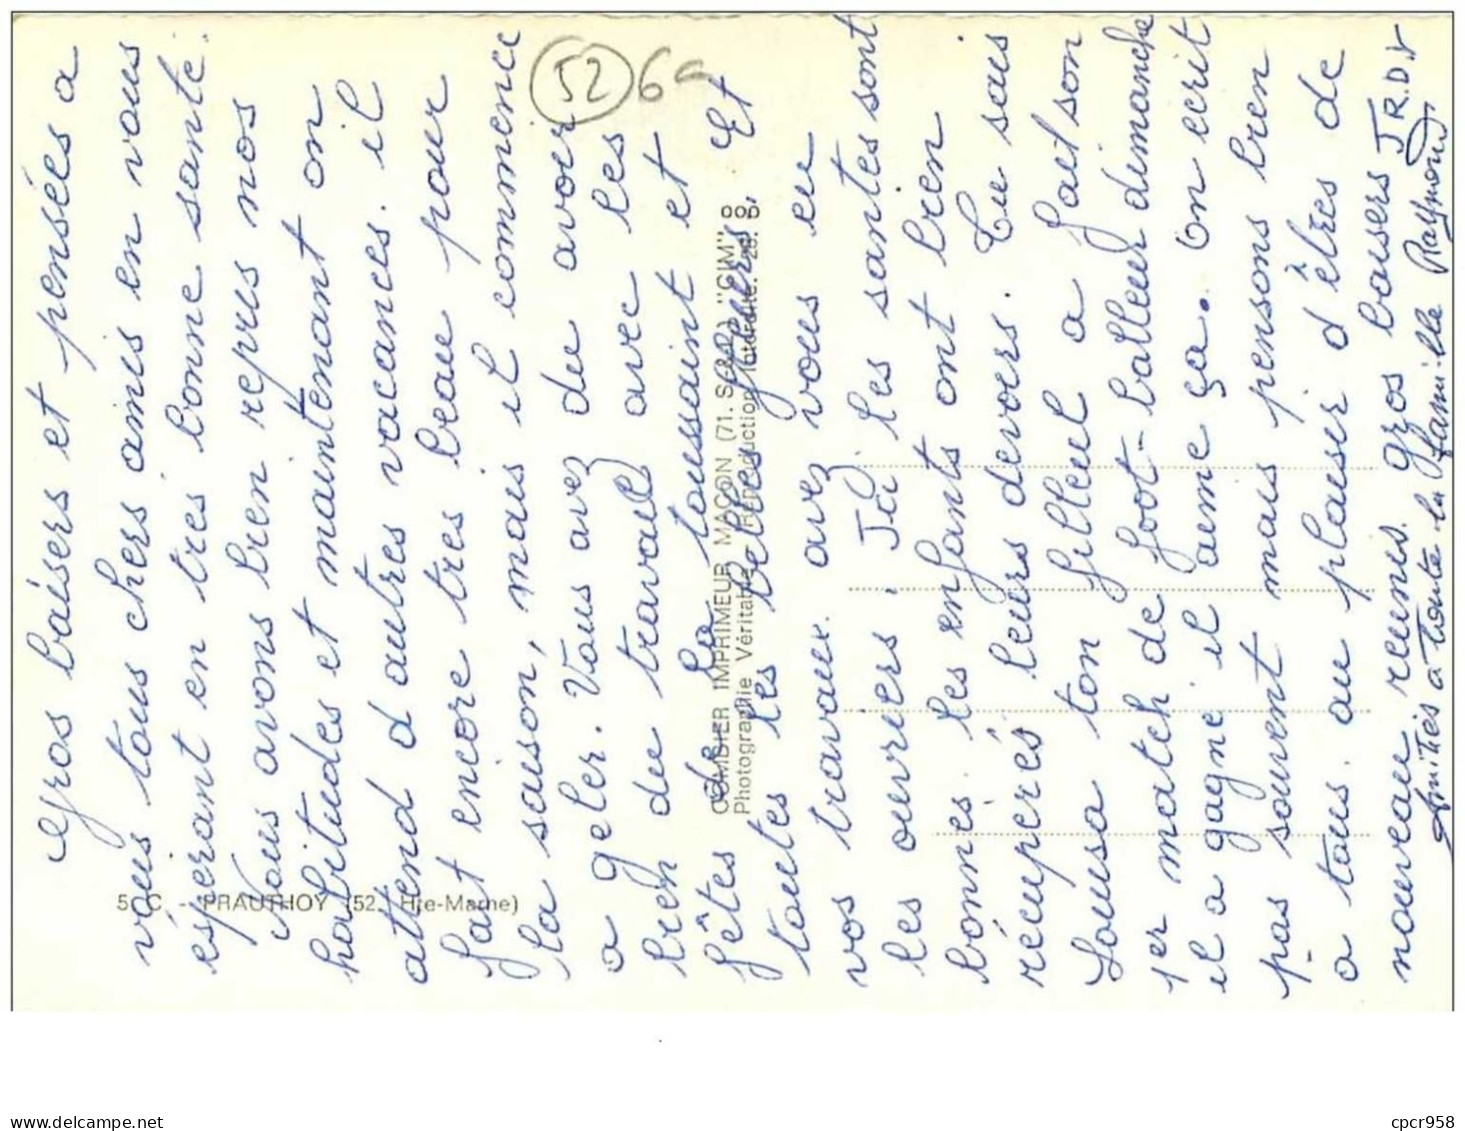 Gros baisers et pensées a
vous tous chers amis en vous
esperant en tres bonne sante.
Nous avons bien repris nos
habitudes et maintenant on
attend d'autres vacances. il
fait encore tres beau pour
la saison, mais il commence
a geler. Vous avez du avoir
bien du travail avec les
fêtes de la toussaint et
toutes les belles fleurs, et
vos travaux. avez vous eu
les ouvriers. Ici les santes sont
bonnes. les enfants ont bien
recuperés leurs devoirs. Tu sais
Louisa ton filleul a fait son
1er match de foot-balleur dimanche
il a gagné il aime ça. on ecrit
pas souvent mais pensons bien
a tous. au plaisir d'êtres de
nouveau reunis gros baisers J R.D.V
Amitiés a toute la famille Raymond
52
6a
5. C - PRAUTHOY (52. Hte-Marne)
COMBIER IMPRIMEUR MACON (71. S-&-L) "CIM"
Photographie Véritable Reproduction Interdite.
cartes-postales-delcampe.net
cpcr958